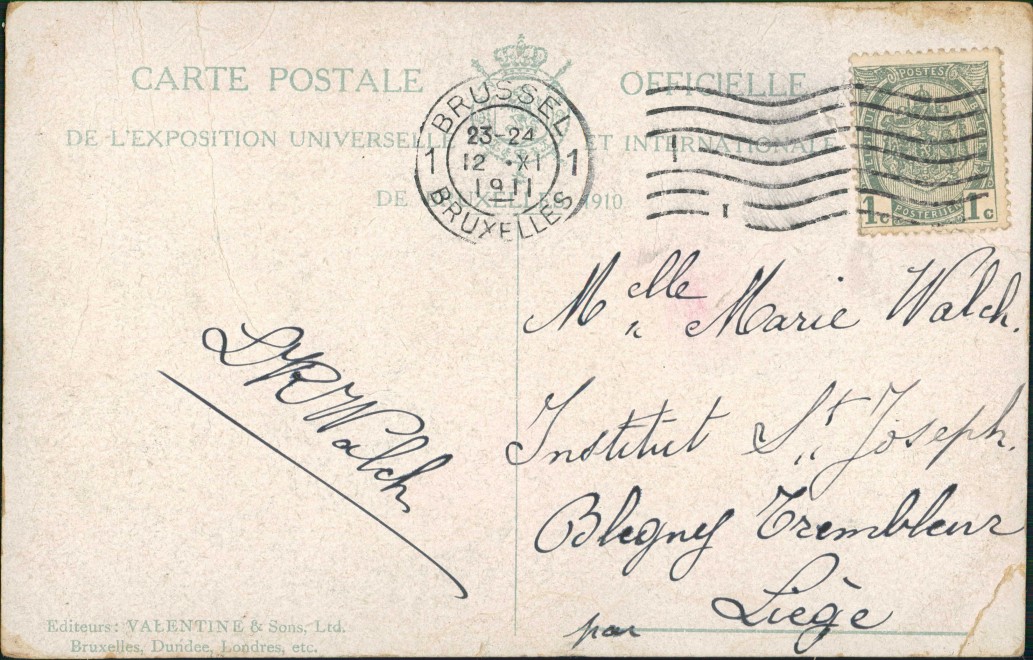 CARTE POSTALE OFFICIELLE
DE L'EXPOSITION UNIVERSELLE ET INTERNATIONALE
DE BRUXELLES 1910.
BRUSSEL
1 23-24 1
12 · XI
1911
BRUXELLES
I
POSTES
1c POSTERIJEN 1c
Melle Marie Walch.
Institut St Joseph.
Blegny Trembleur
par Liège
Walch
Editeurs: VALENTINE & Sons, Ltd.
Bruxelles, Dundee, Londres, etc.